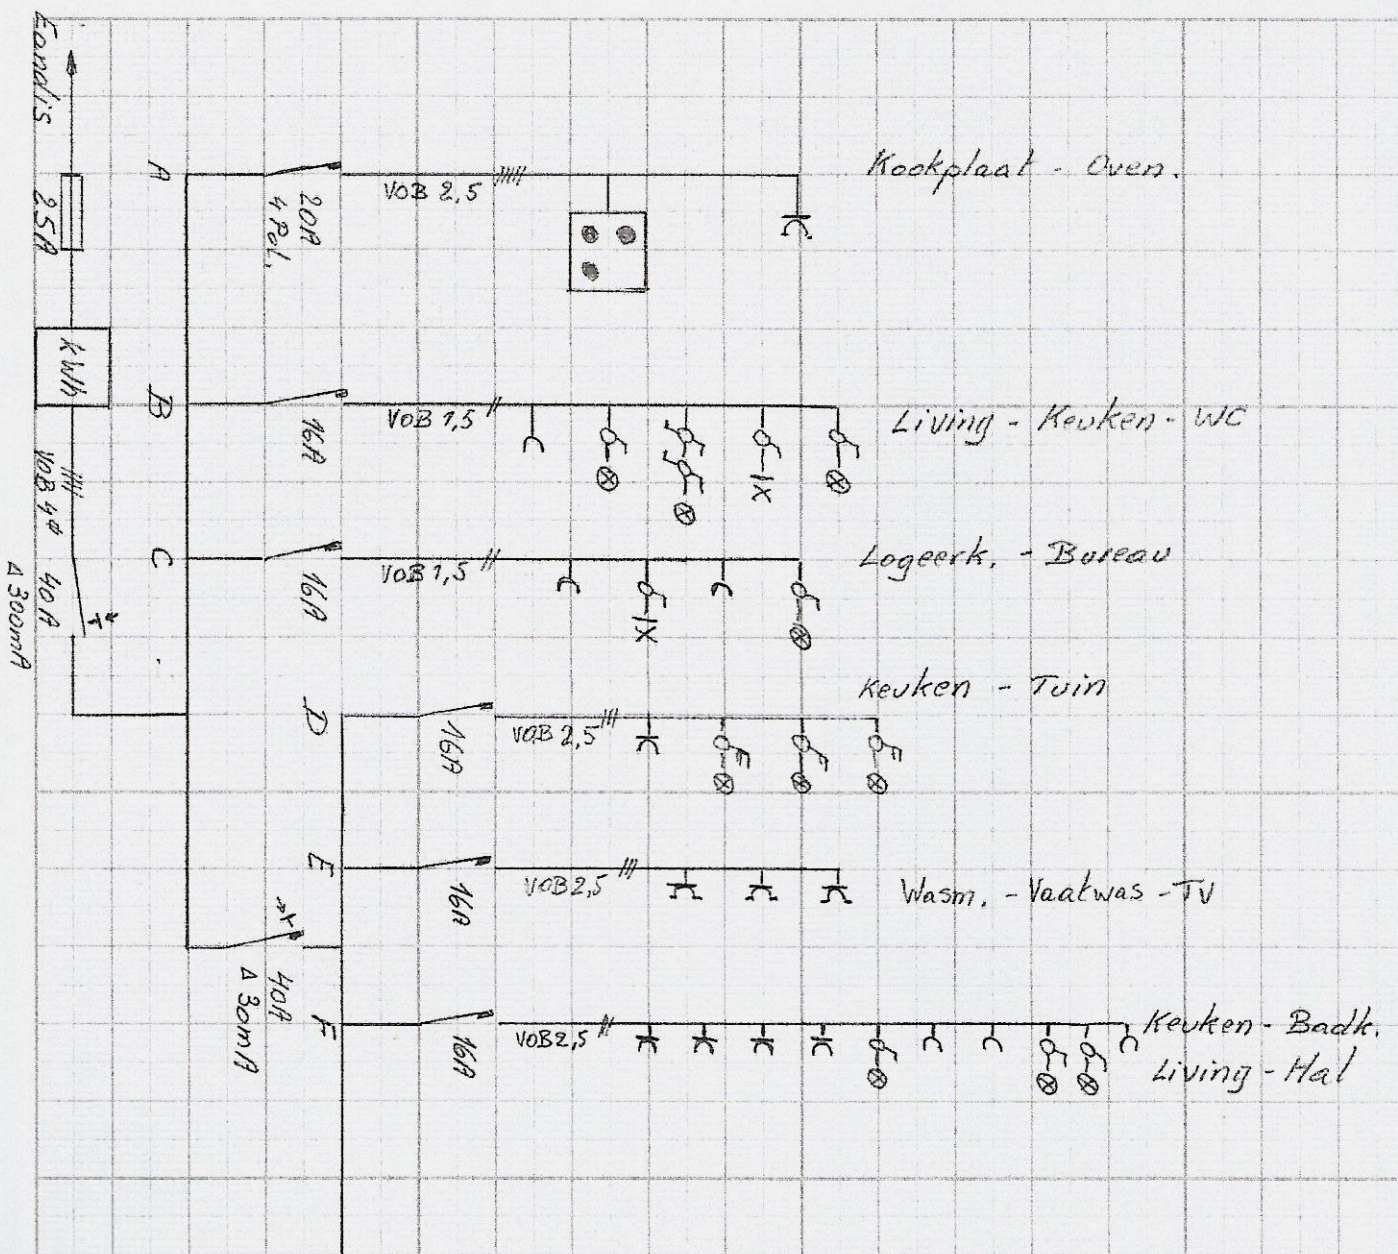 Eandis
25A
kWh
VOB 4⌀
40A
Δ 300mA
A
20A
4 Pol.
VOB 2,5
Kookplaat - Oven.
B
16A
VOB 1,5
Living - Keuken - WC
C
16A
VOB 1,5
Logeerk. - Bureau
D
16A
VOB 2,5
Keuken - Tuin
E
16A
VOB 2,5
Wasm. - Vaatwas - TV
40A
Δ 30mA
F
16A
VOB 2,5
Keuken - Badk.
Living - Hal